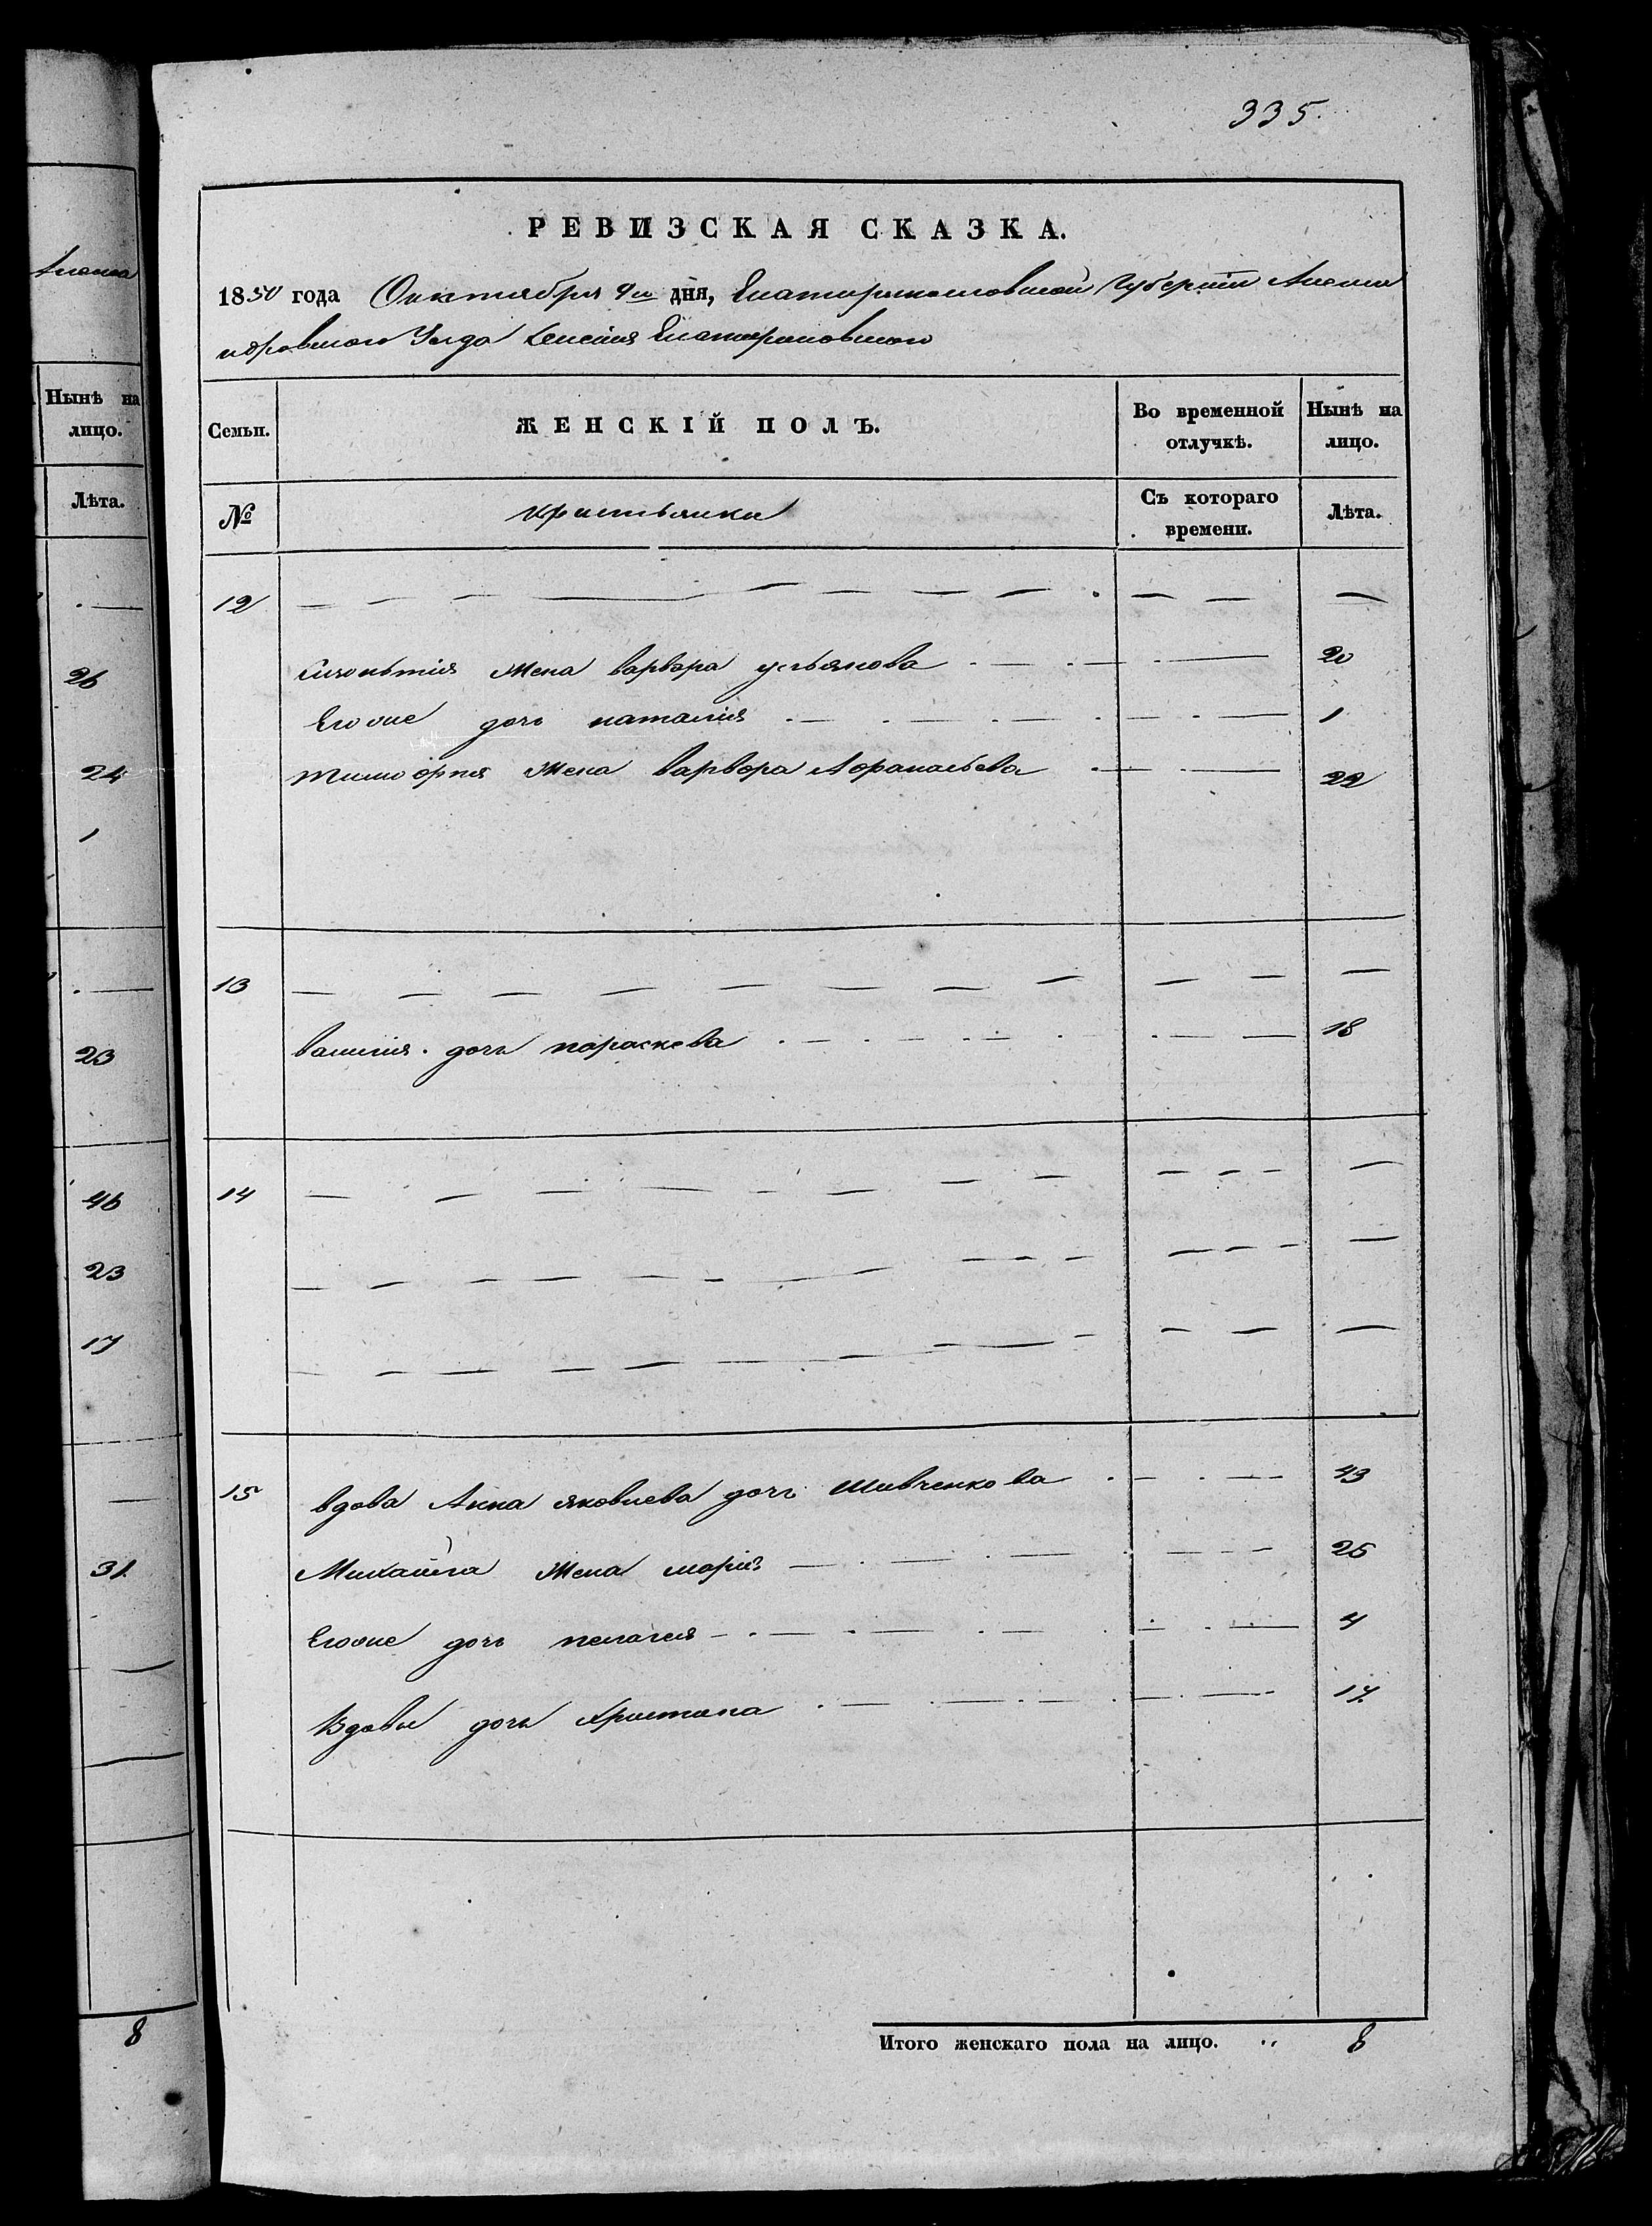 335.
Нынѣ на
лицо.
Лѣта.
26
24
1
23
46
23
17
31.
8
РЕВИЗСКАЯ СКАЗКА.
1850 года Октября дня, Екатеринославской Губернiи Алексан
дровского Уезда Селенiя Екатериновского
Семьи. ЖЕНСКIЙ ПОЛЪ. Во временной отлучкѣ. Нынѣ на лицо.
№ Крестьянки Съ котораго времени. Лѣта.
12 — — — — — — — — — — —
жена варвара ульянова — — 20
Еговне дочь наталия — — 1
тимофея жена варвора Афанасьева — — 22
13 — — — — — — — — — — —
василия дочь пораскева — — 18
14 — — — — — — — — — — — —
— — — — — — — — — — — —
— — — — — — — — — — —
15 вдова Анна яковлева дочь Шевченкова — — 43
Михайла жена мория — — 25
Еговне дочь пелагея — — 4
Вдовы дочь Христина — — 17
Итого женскаго пола на лицо. 8